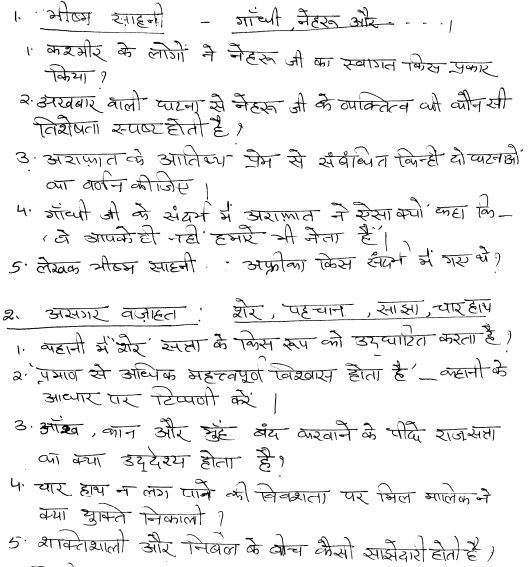 1. भीष्म साहनी - गाँधी, नेहरू और - - - - ।
1. कश्मीर के लोगों ने नेहरू जी का स्वागत किस प्रकार
किया ?
2. अखबार वाली घटना से नेहरू जी के व्यक्तित्व की कौन सी
विशेषता स्पष्ट होती है ?
3. अराफ़ात के आतिथ्य प्रेम से संबंधित किन्हीं दो घटनाओं
का वर्णन कीजिए ।
4. गाँधी जी के संदर्भ में अराफ़ात ने ऐसा क्यों कहा कि –
'वे आपके ही नहीं हमारे भी नेता हैं' ।
5. लेखक भीष्म साहनी अफ्रीका किस संदर्भ में गए थे ?
2. असगर वज़ाहत : शेर, पहचान, साझा, चार हाथ
1. कहानी में 'शेर' सत्ता के किस रूप को उद्घाटित करता है ?
2. 'प्रमाण से अधिक महत्त्वपूर्ण विश्वास होता है' – कहानी के
आधार पर टिप्पणी करें ।
3. आँख, कान और मुँह बंद करवाने के पीछे राजसत्ता
का क्या उद्देश्य होता है ?
4. चार हाथ न लग पाने की विवशता पर मिल मालिक ने
क्या युक्ति निकाली ?
5. शक्तिशाली और निर्बल के बीच कैसी साझेदारी होती है ?